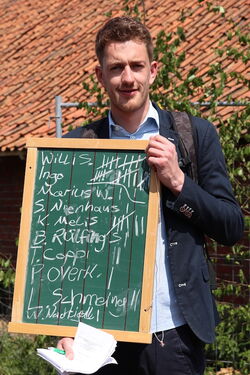 Willi S.
Ingo
Marius W.
S. Neenhaus
K. Melis
B. Rülfing S.
T. Coppi
P. Overk.
Schmelnog
W. Nachtigall